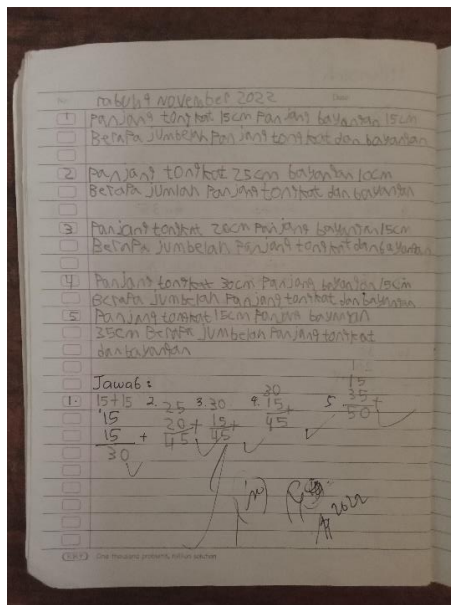 No. rabu, 9 November 2022 Date
1 Panjang tongkat 15cm Panjang bayangan 15cm
Berapa jumbelah Panjang tongkat dan bayangan
2 Panjang tongkat 25cm bayangan 10cm
Berapa jumlah Panjang tongkat dan bayangan
3 Panjang tongkat 20cm Panjang bayangan 15cm
Berapa jumbelah Panjang tongkat dan bayangan
4 Panjang tongkat 30cm Panjang bayangan 15cm
Berapa jumbelah Panjang tongkat dan bayangan
5 Panjang tongkat 15cm Panjang bayangan
35cm Berapa jumbelah Panjang tongkat
dan bayangan
Jawab:
1. 15+15 2. 25 3. 30 4. 30 5. 15
15 20 15 15 35
15 + 45 + 45 + 45 + 50 +
30
2022
One thousand problems, million solution